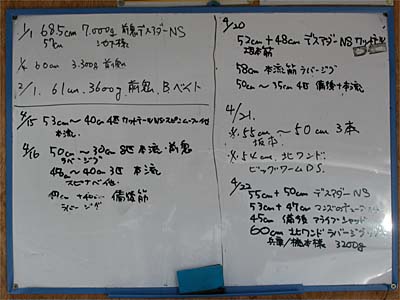 1/1 68.5cm 7,000g 前鬼 デスアダーNS
57cm
1/4 60cm 3,300g 前鬼
2/1. 61cm. 3600g 前鬼. B.ベスト
4/15 53cm〜40cm 4匹
本流.
4/16 50cm〜30cm 8匹 本流・前鬼
ラバージグ
48cm〜40cm 3匹 本流
スピナベ他.
備後筋
ラバージグ
4/20
52cm + 48cm デスアダーNS
坂本筋
58cm 本流筋 ラバージグ
50cm〜35cm 4匹 備後+本流
4/21.
※.55cm〜50cm 3本
坂本.
※.54cm. 北ワンド.
ビッグワームDS.
4/22
55cm + 50cm デスアダーNS
53cm + 47cm
45cm 備後
60cm 北ワンド ラバージグ
兵庫/橋本様 3200g